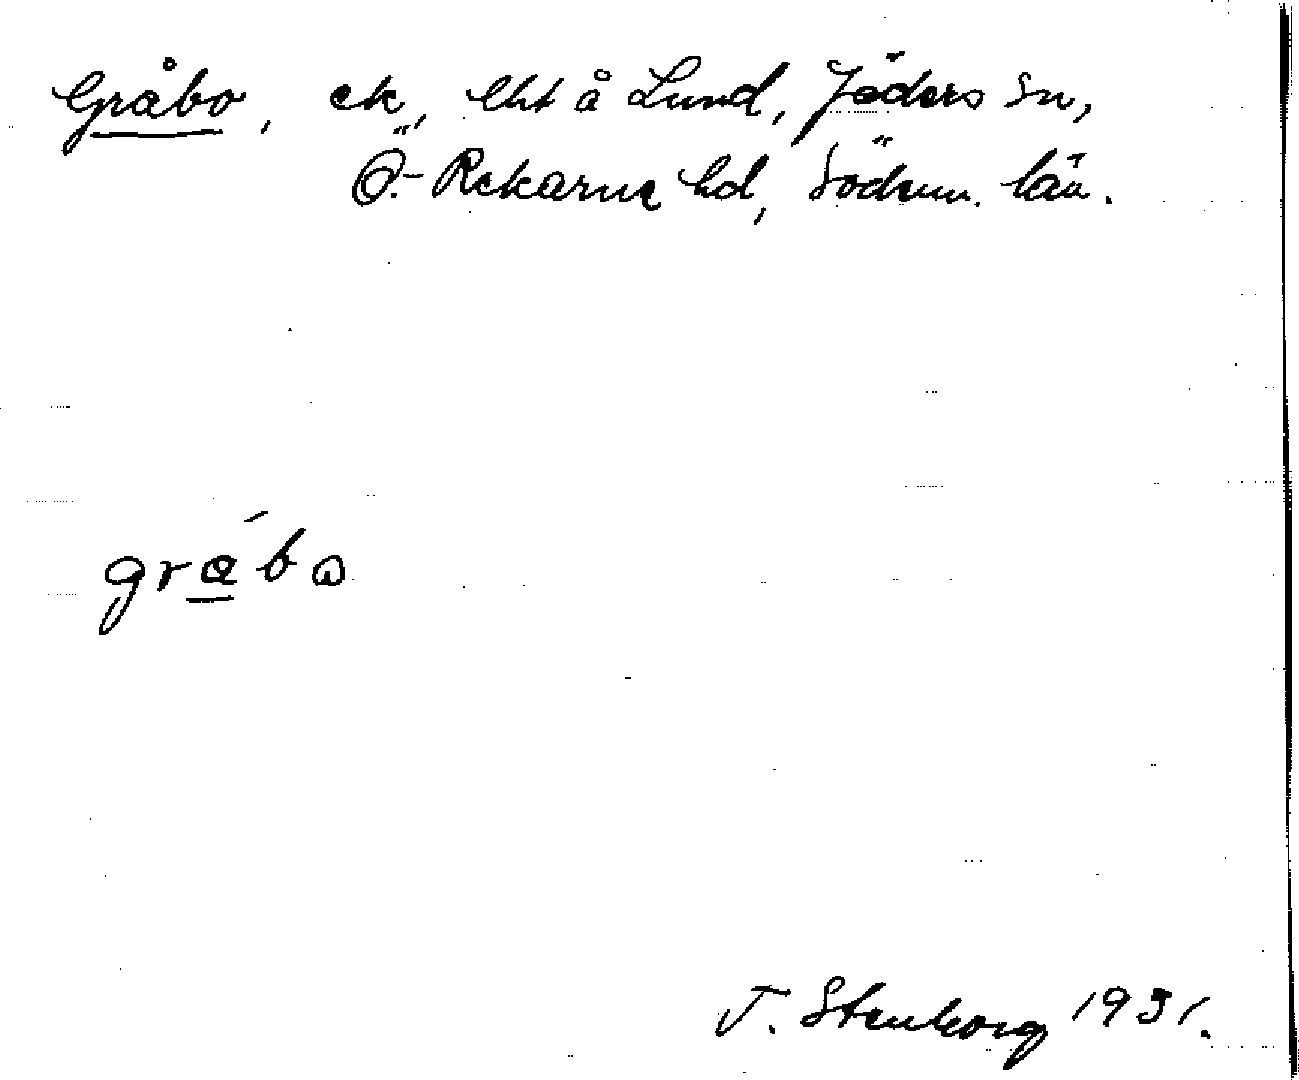 Gråbo, ck, lht å Lund, Jäders sn,
Ö.-Rekarne hd, Södum. län.
gra̲´bω
T. Stenborg 1931.